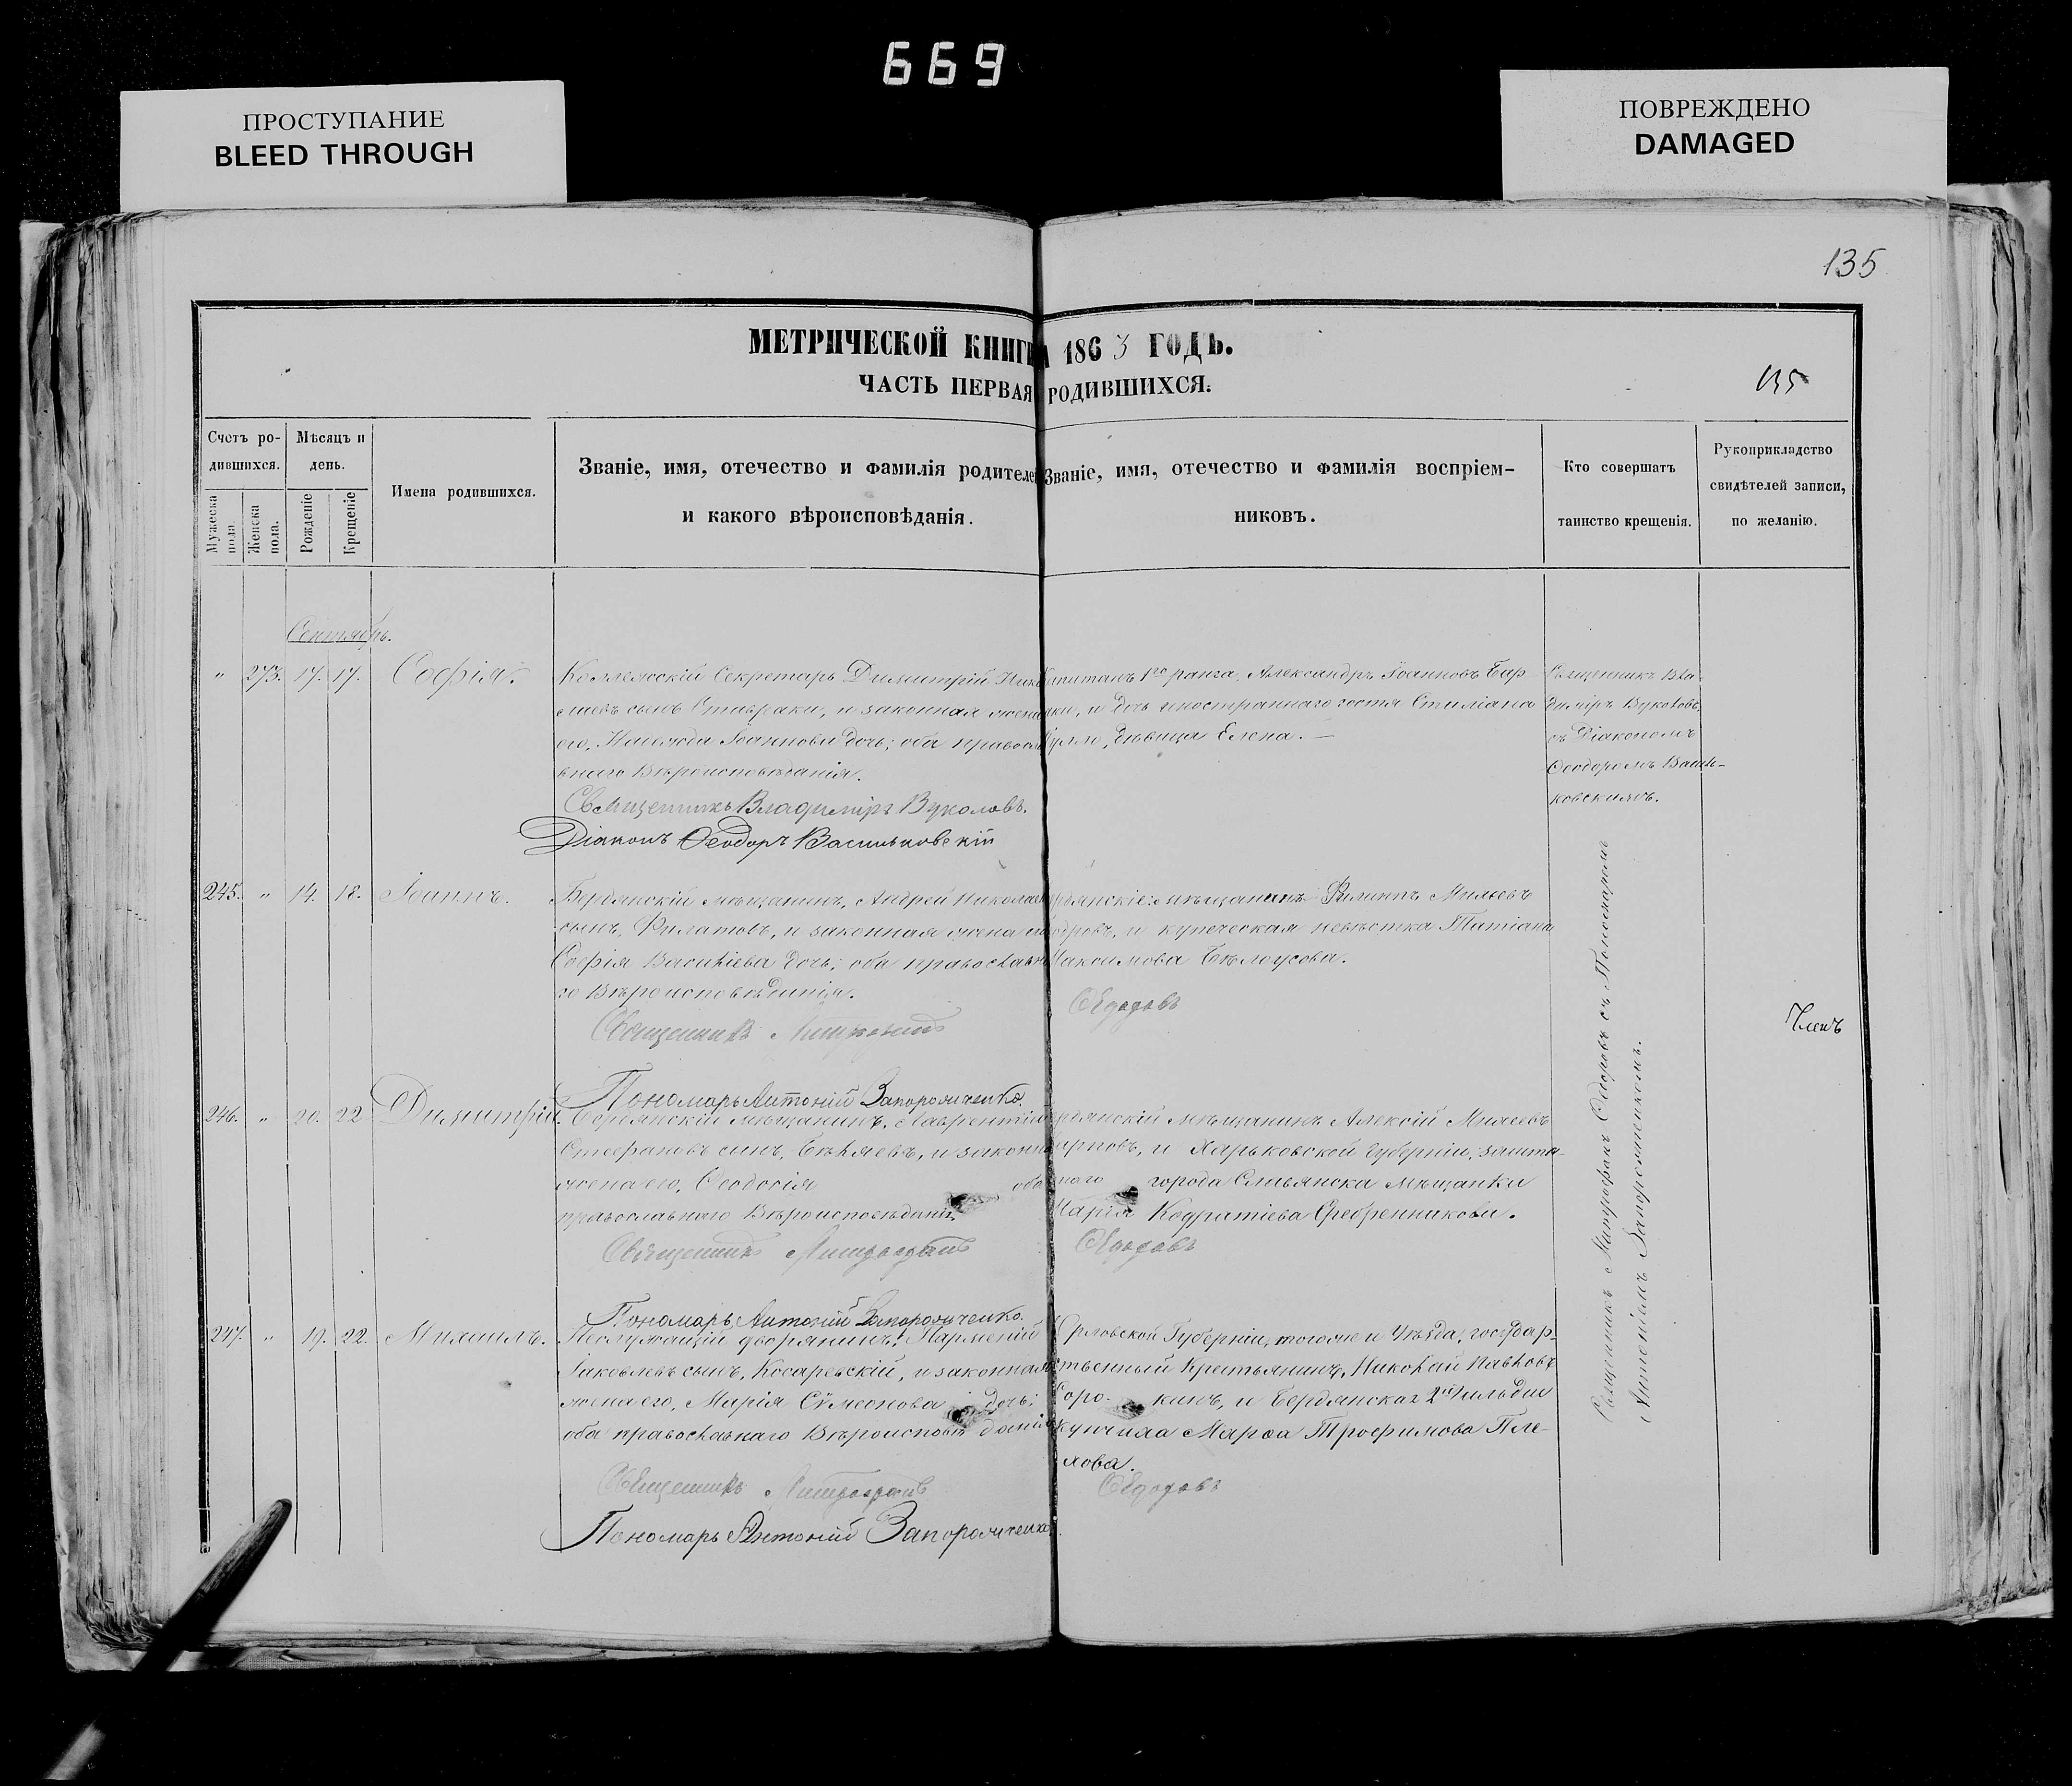 669
ПРОСТУПАНИЕ
BLEED THROUGH
ПОВРЕЖДЕНО
DAMAGED
135
МЕТРИЧЕСКОЙ КНИГИ НА 1863 ГОДЪ.
ЧАСТЬ ПЕРВАЯ РОДИВШИХСЯ.
135
Счетъ ро-
дившихся.
Мужеска пола
Женска пола.
Мѣсяцъ и
день.
Рожденіе
Крещеніе
Имена родившихся.
Званіе, имя, отечество и фамилія родителей
и какого вѣроисповѣданія.
Званіе, имя, отечество и фамилія воспріем-
никовъ.
Кто совершатъ
таинство крещенія.
Рукоприкладство
свидѣтелей записи,
по желанію.
Сентябрь.
" 273. 17. 17. Софія.
Коллежскій Секретарь Димитрій Нико
лаевъ сынъ Ставраки, и законная жена
его, Іоаннова дочь; оба правосла
внаго Вѣроисповѣданія.
Священникъ Владиміръ Вуколовъ.
Діаконъ Ѳеодоръ Васильковскій
Капитанъ 1го ранга, Александръ Іоанновъ
и дочь иностраннаго гостя Стиліана
дѣвица Елена. —
Священникъ Вла-
диміръ Вуколовъ,
съ Діакономъ
Ѳеодоромъ Василь-
ковскимъ.
245. " 14. 18. Іоаннъ.
Бердянскій мѣщанинъ, Андрей Николаевъ
сынъ, Филатовъ, и законная жена его
Софія Василіева дочь; оба православна
го Вѣроисповѣданія.
Священникъ Митрофанъ
Пономарь Антоній Запорожченко.
Бердянскіе: мѣщанинъ Филиппъ
и купеческая невѣстка Татіана
Максимова Бѣлоусова.
Ѳедоровъ
246. " 20. 22 Димитрій.
Бердянскій мѣщанинъ, Лаврентій
Стефановъ сынъ, Бѣляевъ, и законная
жена его, Ѳеодосія оба
православнаго Вѣроисповѣданія.
Священникъ Митрофанъ
Пономарь Антоній Запорожченко.
Бердянскій мѣщанинъ Алексій
Карповъ, и Харьковской Губерніи, зашта-
тнаго города Славянска мѣщанка
Марія Кодратіева Сребренникова.
Ѳедоровъ
247. " 19. 22. Михаилъ.
Неслужащій дворянинъ, Парменій
Іаковлевъ сынъ, Косаревскій, и законная
жена его, Марія Сѵмеонова дочь;
оба православнаго Вѣроисповѣданія
Священникъ Митрофанъ
Пономарь Антоній Запорожченко.
Орловской Губерніи, тогоже и Уѣзда, государ-
ственный крестьянинъ, Николай Павловъ
Соро- кинъ, и Бердянская 2й гильдіи
купчиха Марѳа Трофимова Пле-
хова.
Ѳедоровъ
Священникъ Митрофанъ Ѳедоровъ съ Пономаремъ
Антоніемъ Запорожченкомъ.
Членъ